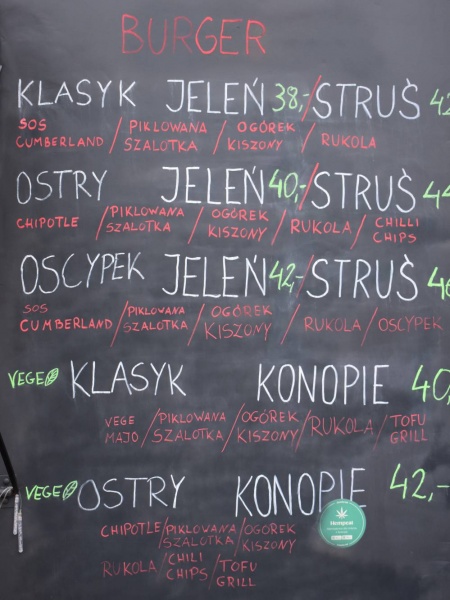 BURGER
KLASYK JELEŃ 38,-/STRUŚ 42
SOS CUMBERLAND / PIKLOWANA SZALOTKA / OGÓREK KISZONY / RUKOLA
OSTRY JELEŃ 40,-/STRUŚ 44
CHIPOTLE / PIKLOWANA SZALOTKA / OGÓREK KISZONY / RUKOLA / CHILLI CHIPS
OSCYPEK JELEŃ 42,-/STRUŚ 46
SOS CUMBERLAND / PIKLOWANA SZALOTKA / OGÓREK KISZONY / RUKOLA / OSCYPEK
VEGE KLASYK KONOPIE 40,
VEGE MAJO / PIKLOWANA SZALOTKA / OGÓREK KISZONY / RUKOLA / TOFU GRILL
VEGE OSTRY KONOPIE 42,-
CHIPOTLE / PIKLOWANA SZALOTKA / OGÓREK KISZONY
RUKOLA / CHILI CHIPS / TOFU GRILL
Hempeat